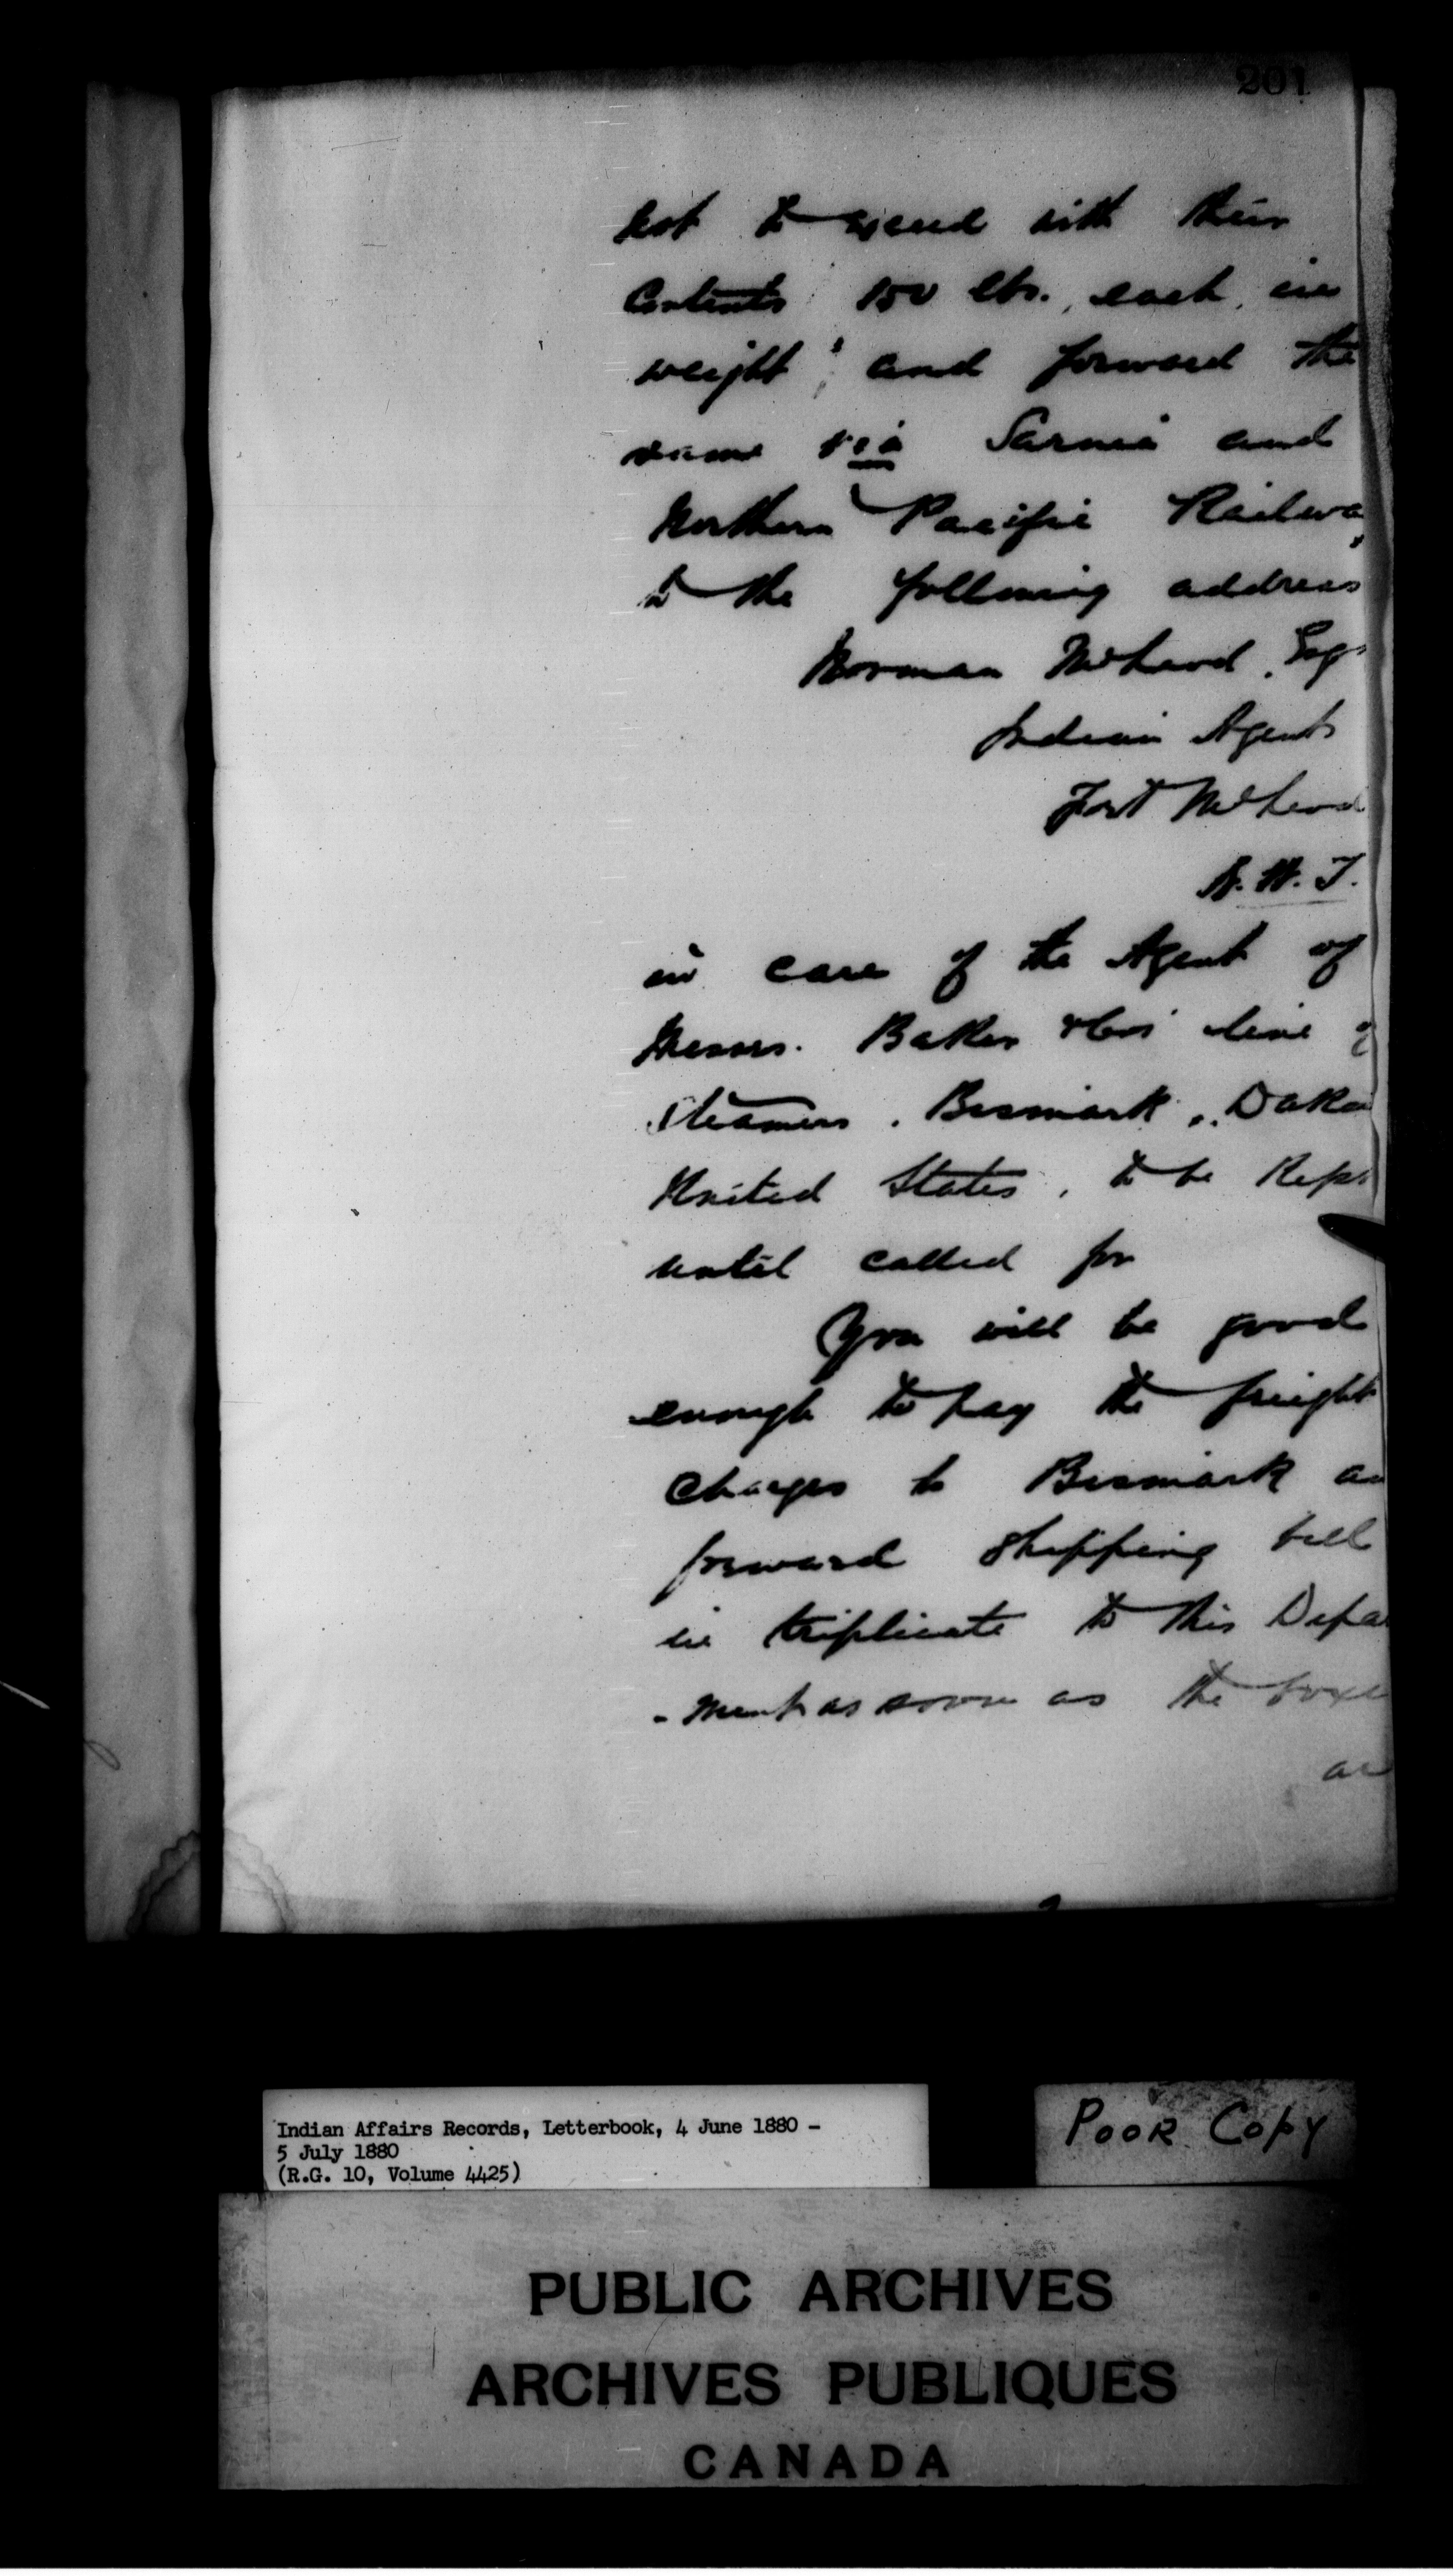 201
not to exceed with their
Contents 150 lbs., each, in
weight; and forward the
same via Sarnia and
Northern Pacific Railwa
to the following address
Norman McLeod, Esq
Indian Agent
Fort McLeod
N.W.T.
in care of the Agent of
Messrs. Baker & Co's line of
Steamers, Bismark, Dako
United States, to be Kept
until called for
You will be good
enough to pay the freight
Charges to Bismark an
forward shipping bill
in triplicate to this Depa
-ment as soon as the boxe
ar
Indian Affairs Records, Letterbook, 4 June 1880 -
5 July 1880
(R.G. 10, Volume 4425)
POOR COPY
PUBLIC ARCHIVES
ARCHIVES PUBLIQUES
CANADA